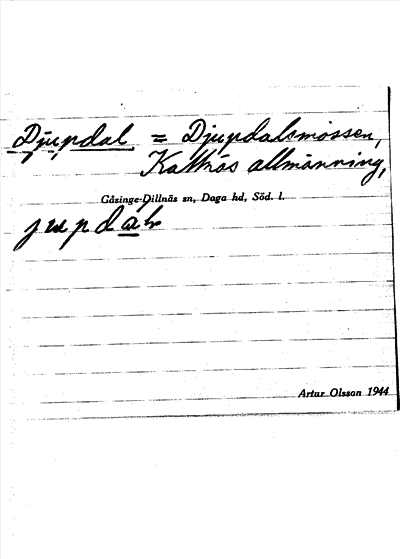 Djupdal = Djupdalsmossen,
Kattnäs allmänning,
Gåsinge-Dillnäs sn, Daga hd, Söd. l.
jupdal
Artur Olsson 1944